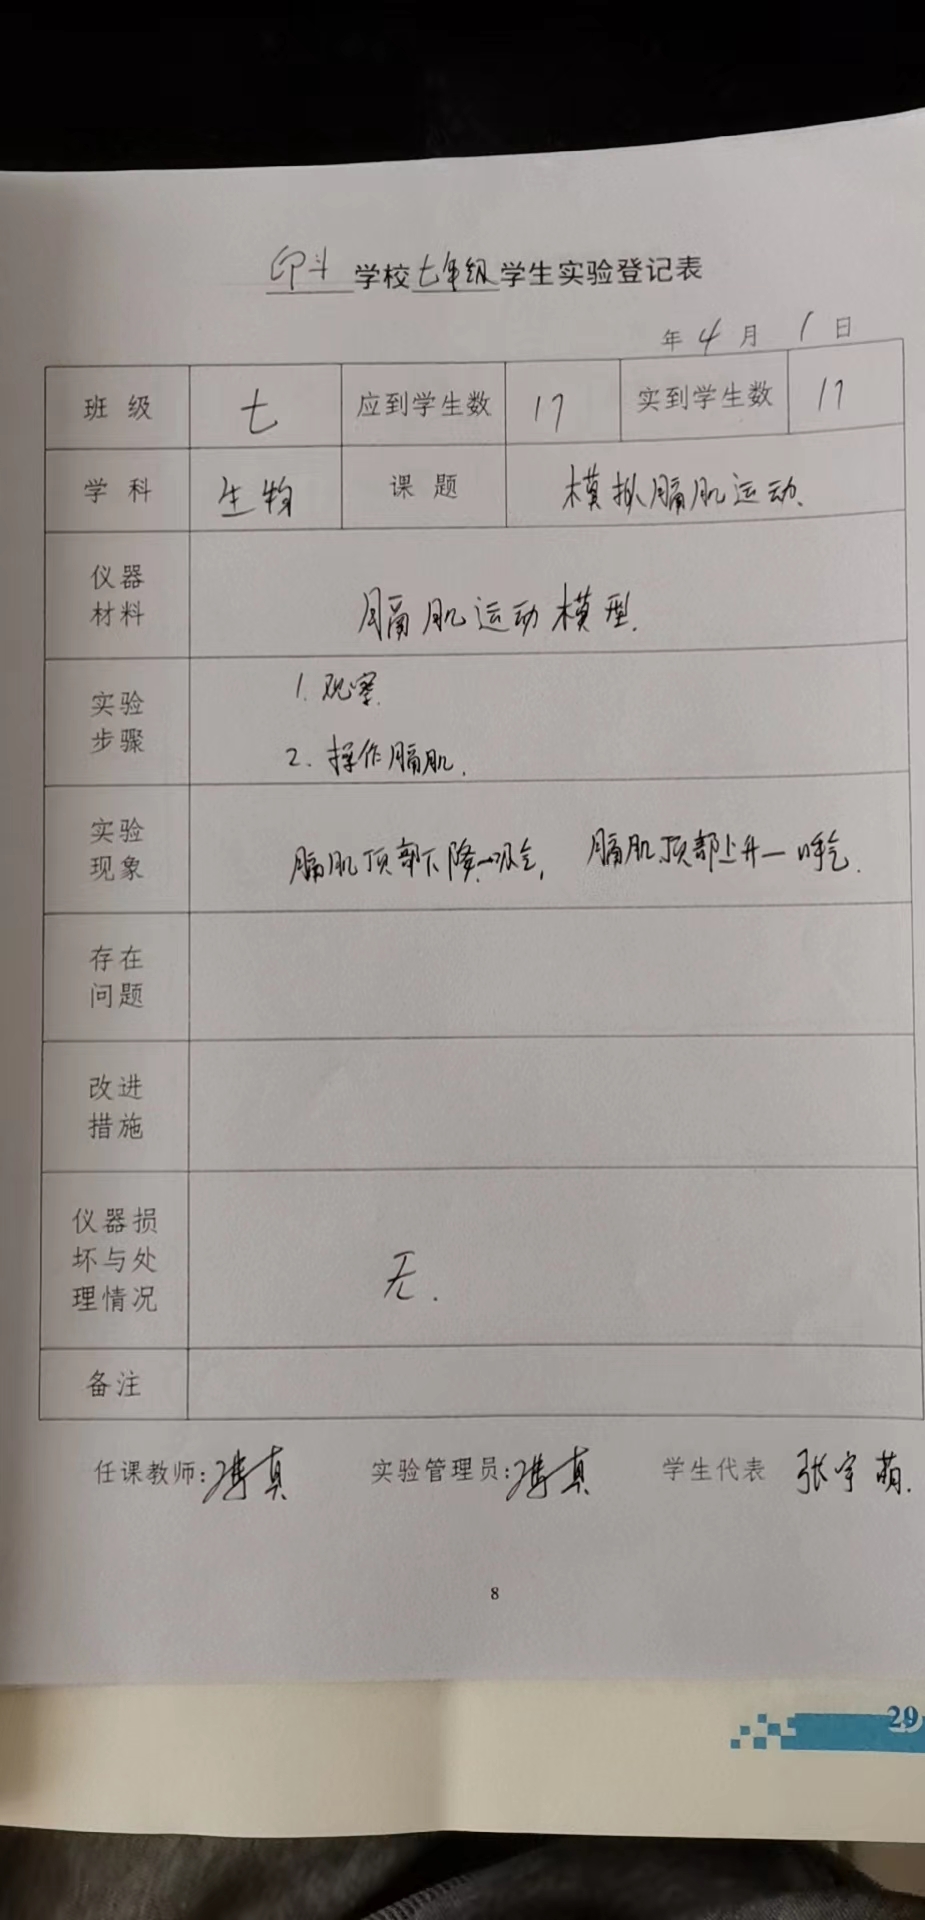 印斗学校七年级学生实验登记表
年4月1日
班级 七 应到学生数 17 实到学生数 17
学科 生物 课题 模拟膈肌运动.
仪器
材料
膈肌运动模型.
实验
步骤
1.观察.
2.操作膈肌.
实验
现象
膈肌顶部下降—吸气, 膈肌顶部上升—呼气.
存在
问题
改进
措施
仪器损
坏与处
理情况
无.
备注
任课教师: 实验管理员: 学生代表 张宇萌.
8
29